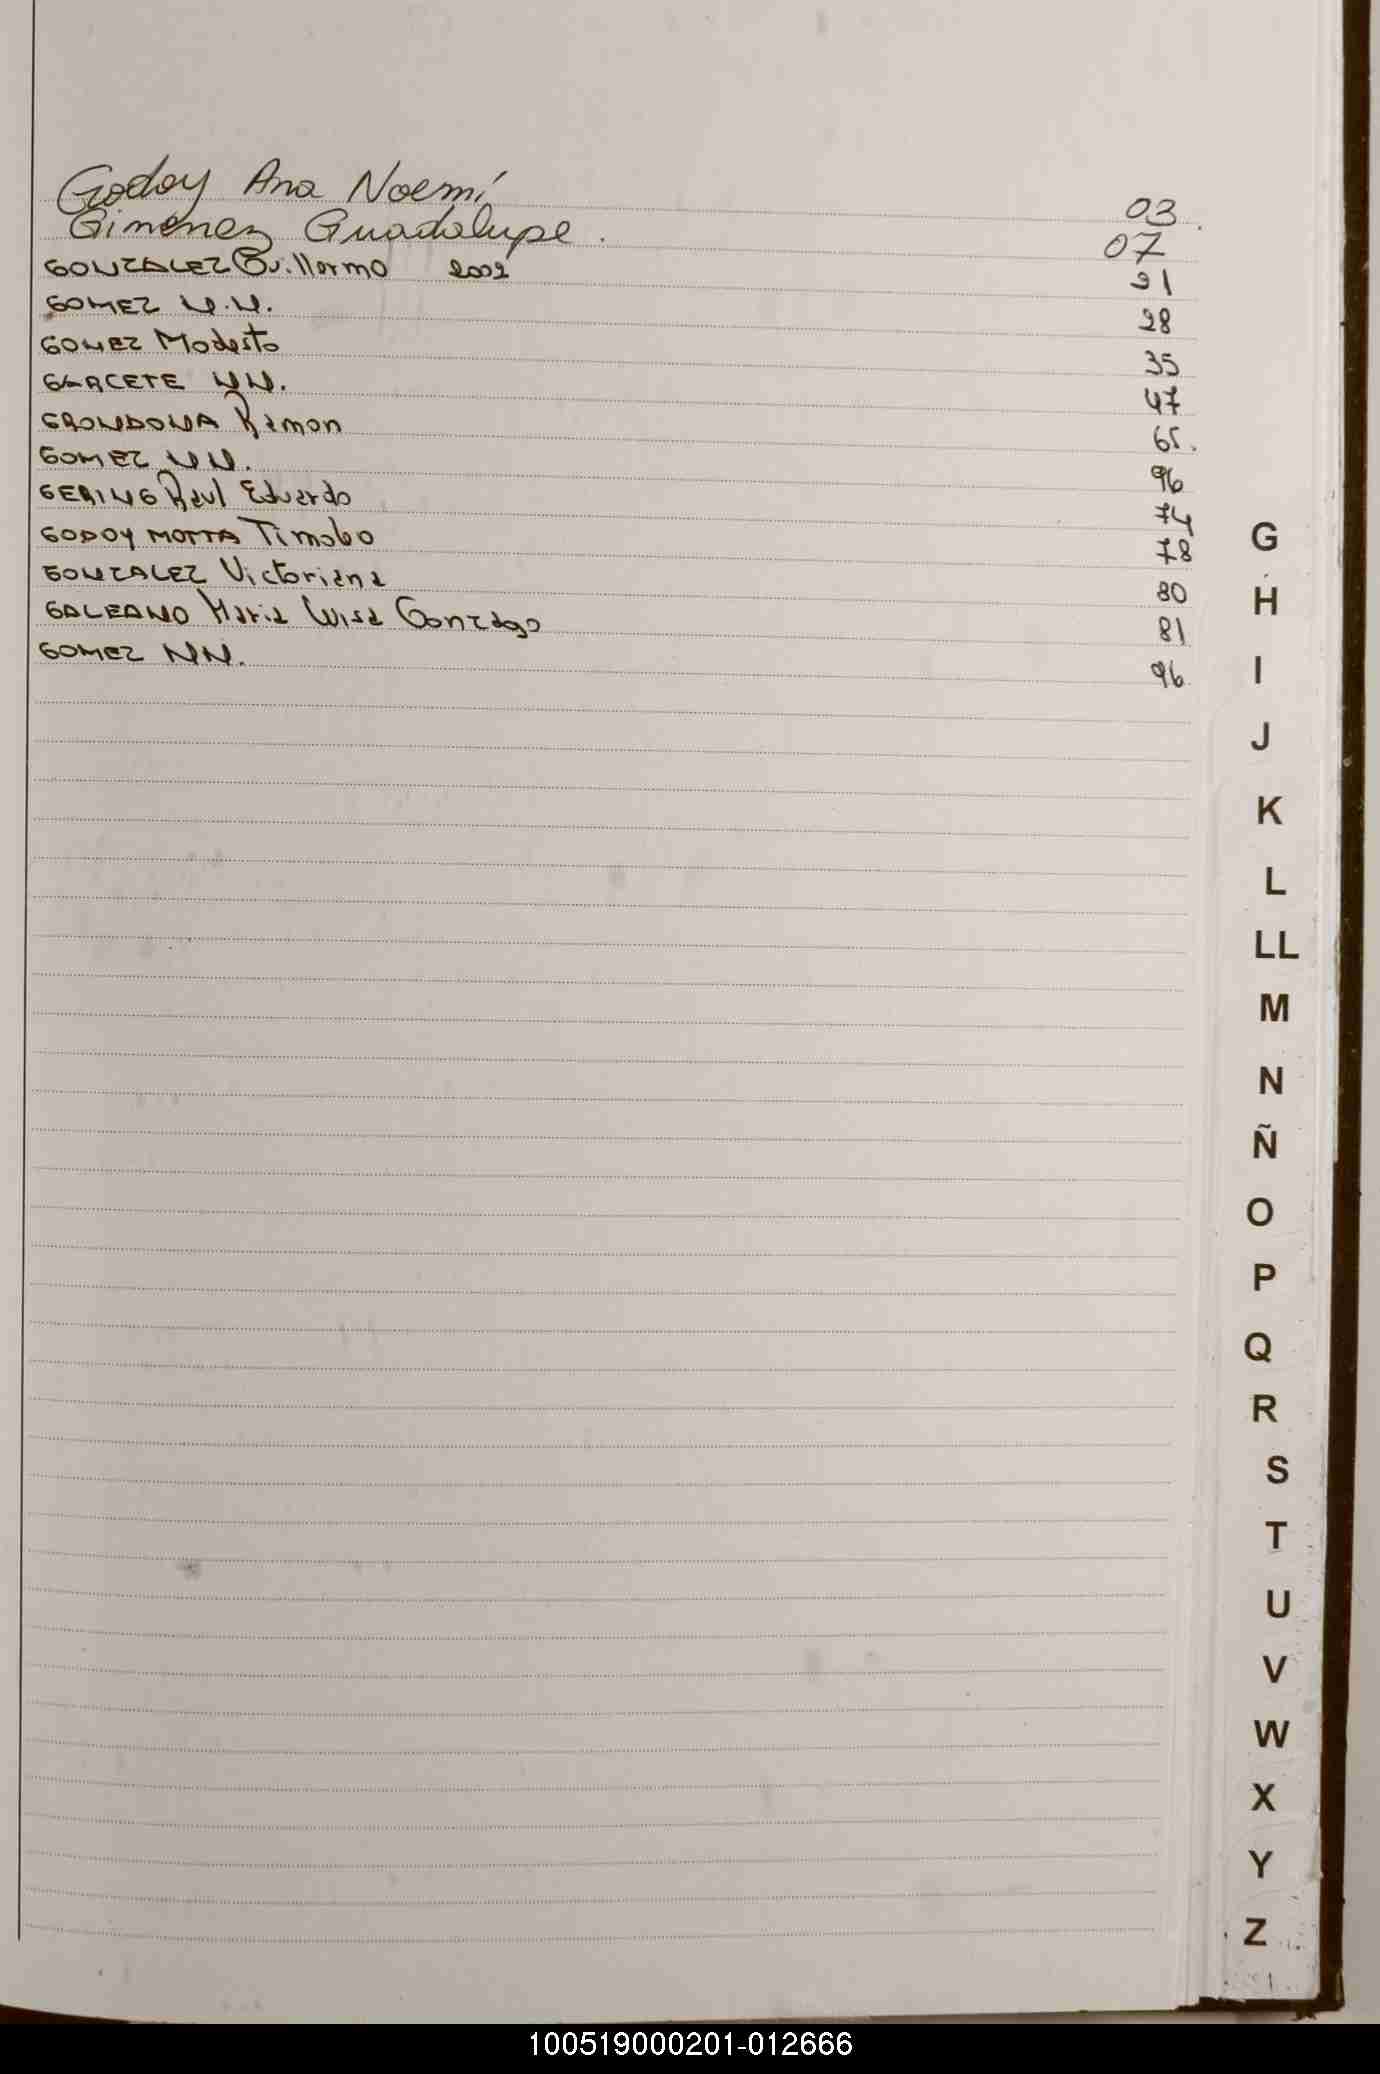 Godoy Ana Noemí 03
Gimenez Guadalupe. 07
GONZALEZ Guillermo 2002 21
GOMEZ N.N. 28
GOMEZ Modesto 35
GARCETE NN. 47
GRONDONA Ramon 65.
GOMEZ NN. 96
GERING Raul Eduardo 74
GODOY MOTTA Timobo 78
GONZALEZ Victoriana 80
GALEANO Maria Luisa Gonzaga 81
GOMEZ NN. 96
G
H
I
J
K
L
LL
M
N
Ñ
O
P
Q
R
S
T
U
V
W
X
Y
Z
100519000201-012666